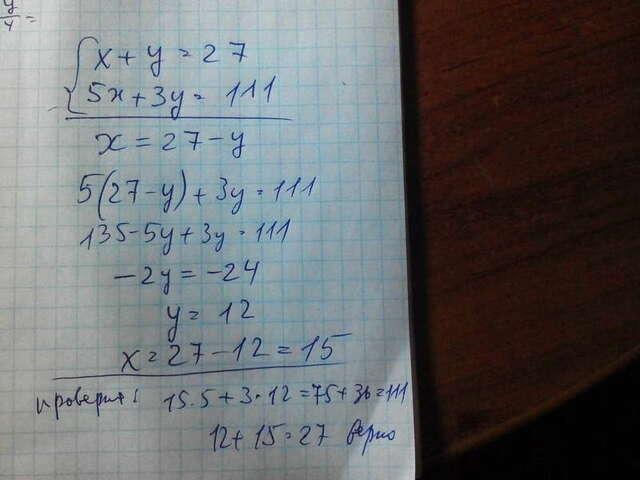 y/4 =
{ x + y = 27
5x + 3y = 111
x = 27 - y
5(27 - y) + 3y = 111
135 - 5y + 3y = 111
-2y = -24
y = 12
x = 27 - 12 = 15
проверка: 15·5 + 3·12 = 75 + 36 = 111
12 + 15 = 27 верно